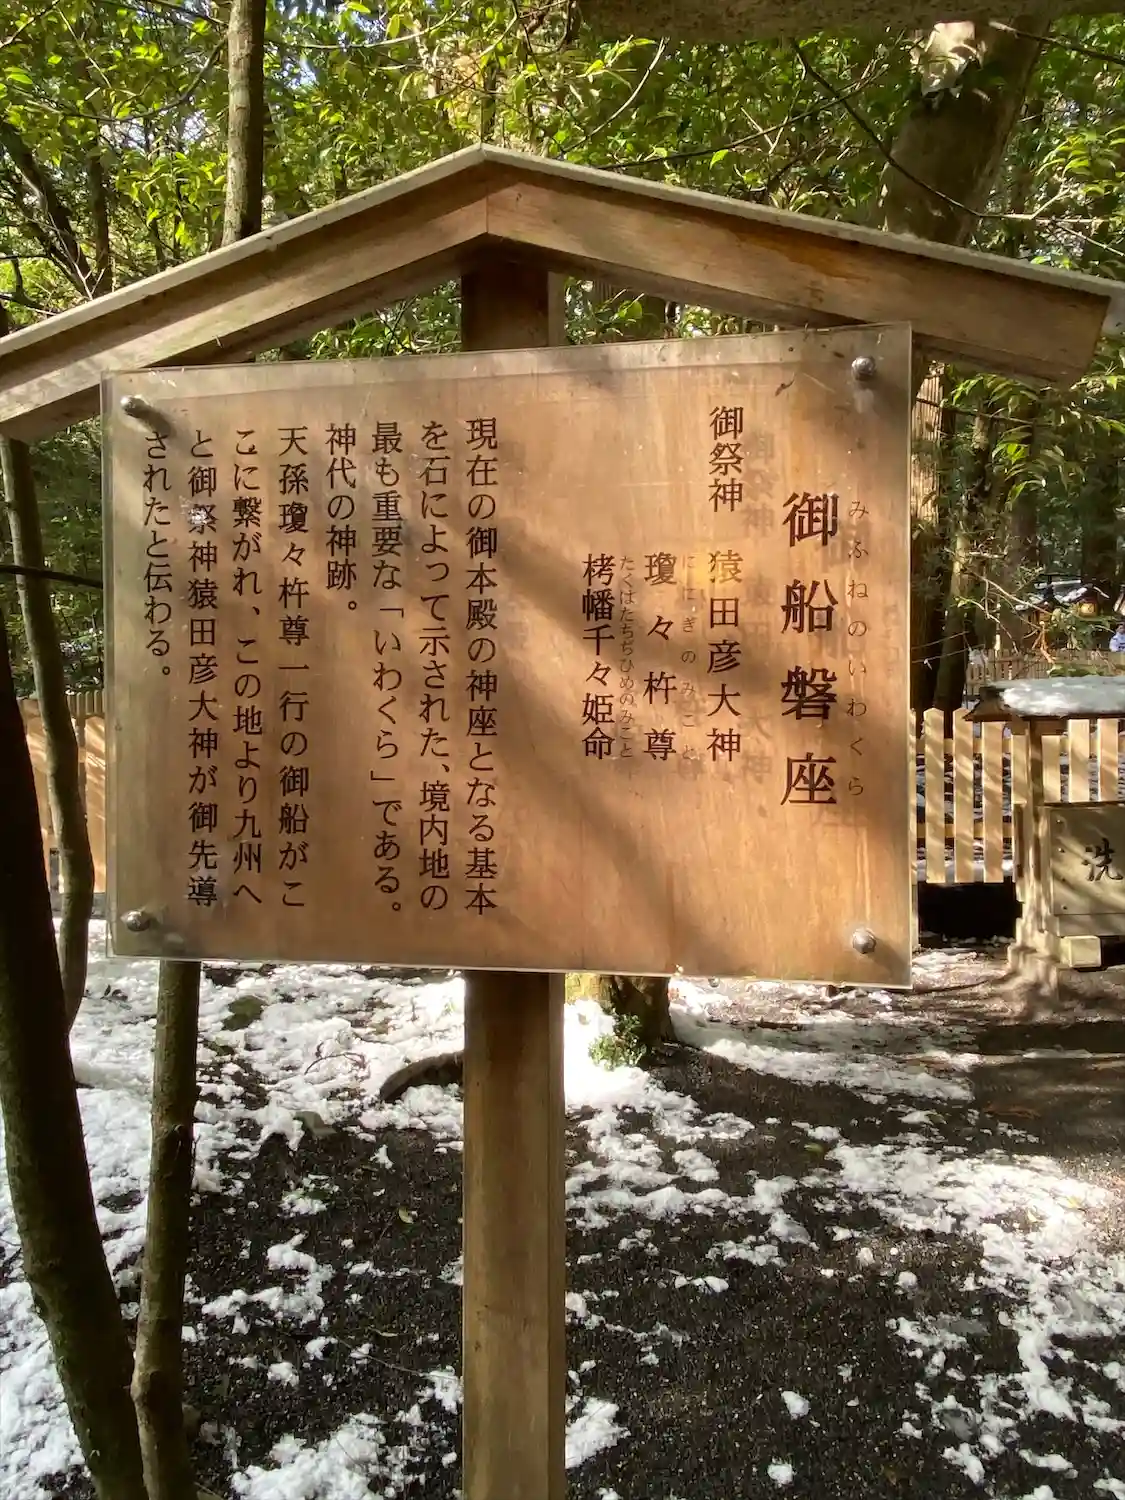 御船磐座
みふねのいわくら
御祭神 猿田彦大神
瓊々杵尊
ににぎのみこと
栲幡千々姫命
たくはたちぢひめのみこと
現在の御本殿の神座となる基本
を石によって示された、境内地の
最も重要な「いわくら」である。
神代の神跡。
天孫瓊々杵尊一行の御船がこ
こに繋がれ、この地より九州へ
と御祭神猿田彦大神が御先導
されたと伝わる。
洗